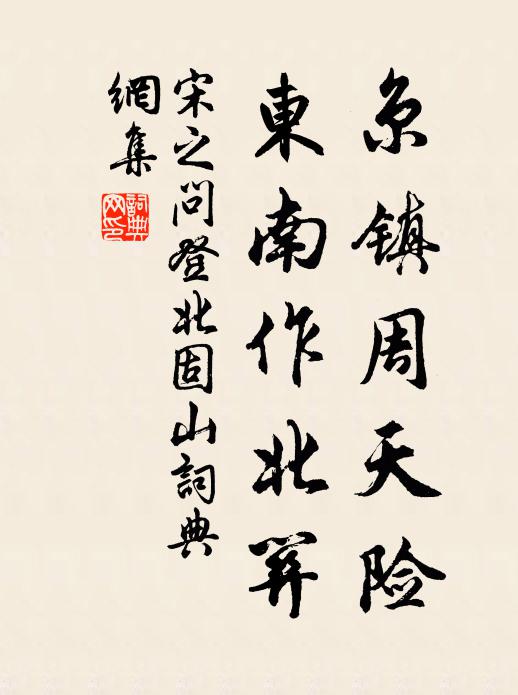 京镇周天险
東南作北關
宋之问登北固山詞典
網集
詞典
网印